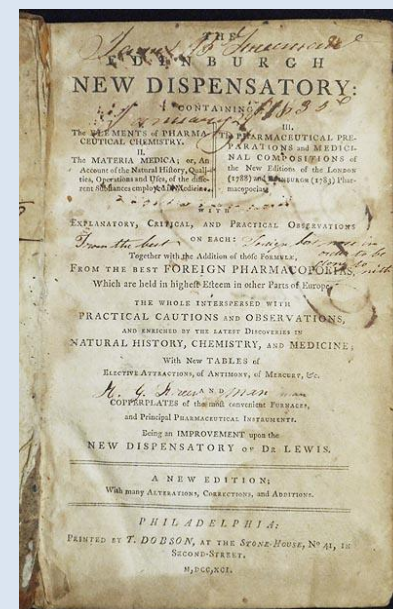 THE
James B Freeman
EDINBURGH
NEW DISPENSATORY:
CONTAINING
January 1835
I.
The ELEMENTS of PHARMA-
CEUTICAL CHEMISTRY.
II.
The MATERIA MEDICA; or, An
Account of the Natural History, Quali-
ties, Operations and Uses, of the diffe-
rent Substances employed in Medicine.
III.
The PHARMACEUTICAL PRE-
PARATIONS and MEDICI-
NAL COMPOSITIONS of
the New Editions of the LONDON
(1788) and EDINBURGH (1783) Phar-
macopoeias;
WITH
EXPLANATORY, CRITICAL, AND PRACTICAL OBSERVATIONS
ON EACH:
From the best
Together with the Addition of thoſe FORMULÆ,
FROM THE BEST FOREIGN PHARMACOPOEIAS,
Which are held in higheſt Eſteem in other Parts of Europe.
THE WHOLE INTERSPERSED WITH
PRACTICAL CAUTIONS AND OBSERVATIONS,
AND ENRICHED BY THE LATEST DISCOVERIES IN
NATURAL HISTORY, CHEMISTRY, AND MEDICINE;
With New TABLES of
ELECTIVE ATTRACTIONS, of ANTIMONY, of MERCURY, &c.
AND
COPPERPLATES of the moſt convenient FURNACES,
and Principal PHARMACEUTICAL INSTRUMENTS.
Being an IMPROVEMENT upon the
NEW DISPENSATORY OF DR LEWIS.
A NEW EDITION;
With many ALTERATIONS, CORRECTIONS, and ADDITIONS.
PHILADELPHIA:
PRINTED BY T. DOBSON, AT THE STONE-HOUSE, No 41, IN
SECOND-STREET.
M,DCC,XCI.